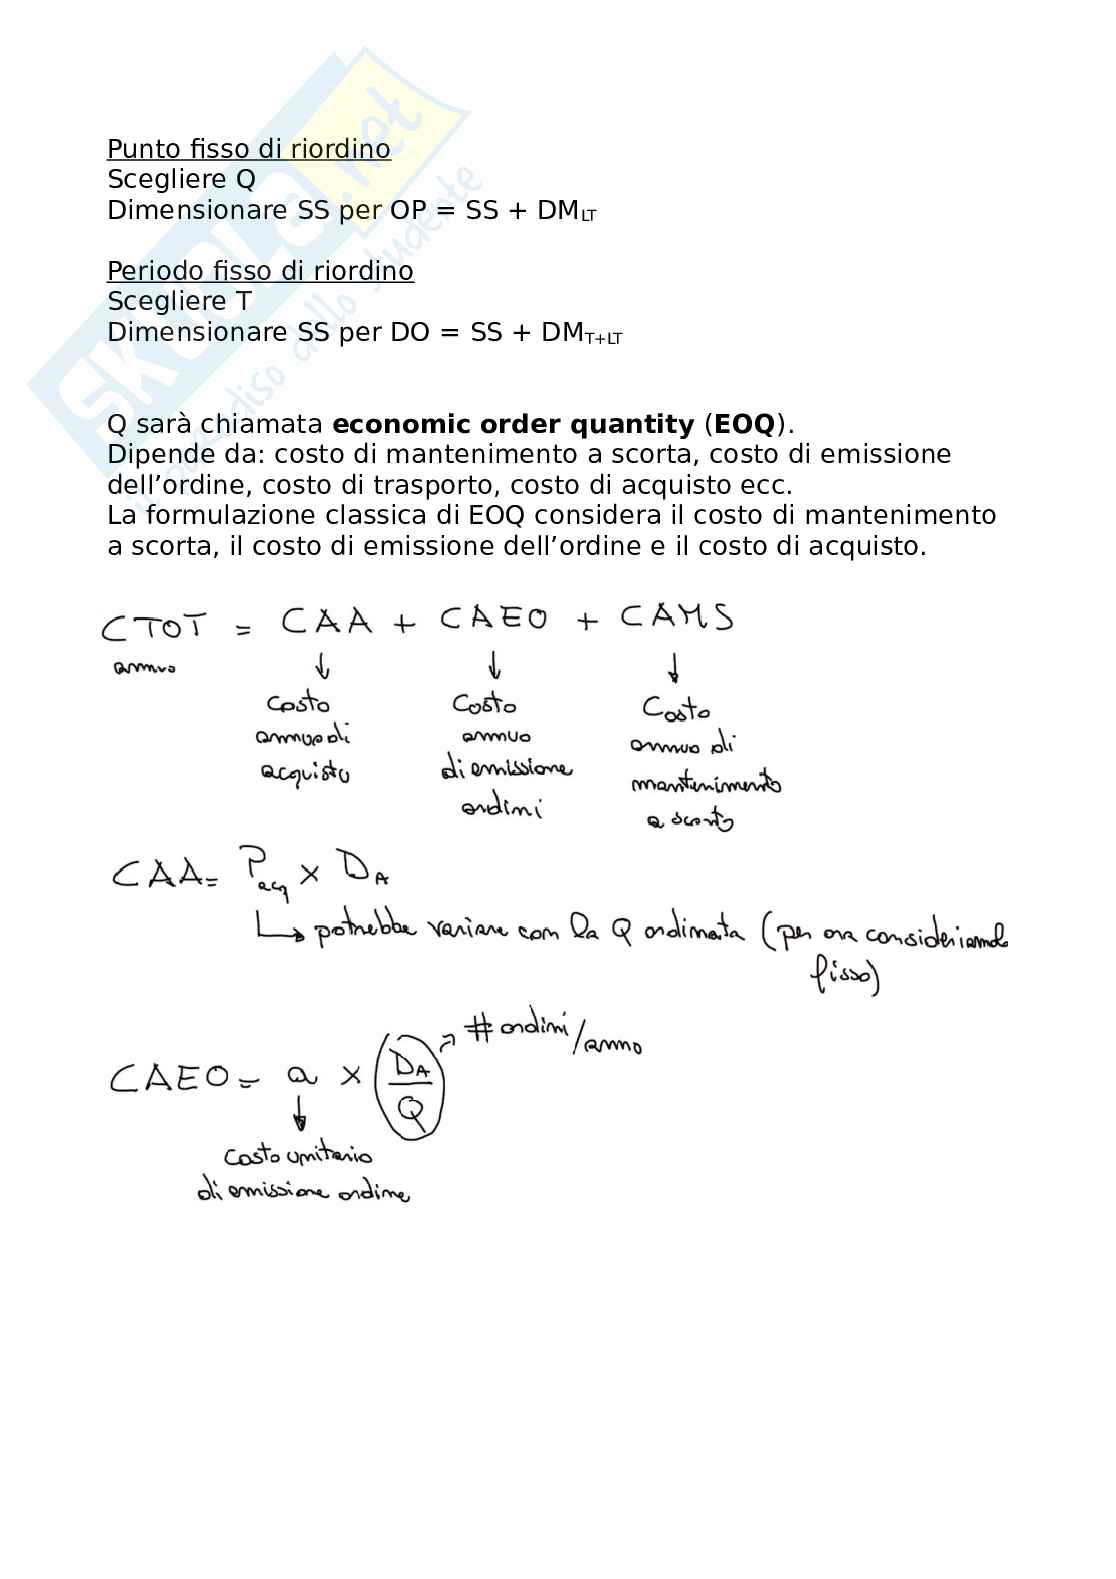 Punto fisso di riordino
Scegliere Q
Dimensionare SS per OP = SS + DM LT
Periodo fisso di riordino
Scegliere T
Dimensionare SS per DO = SS + DM T+LT
Q sarà chiamata economic order quantity (EOQ).
Dipende da: costo di mantenimento a scorta, costo di emissione
dell’ordine, costo di trasporto, costo di acquisto ecc.
La formulazione classica di EOQ considera il costo di mantenimento
a scorta, il costo di emissione dell’ordine e il costo di acquisto.
CTOT annuo = CAA + CAEO + CAMS
↓ Costo annuo di acquisto
↓ Costo annuo di emissione ordini
↓ Costo annuo di mantenimento a scorta
CAA = P acq × D A
↳ potrebbe variare con la Q ordinata (per ora consideriamolo
fisso)
CAEO = a × (D A / Q) ↗ # ordini/anno
↓
costo unitario
di emissione ordine
SKUOLA.net
il paradiso dello studente